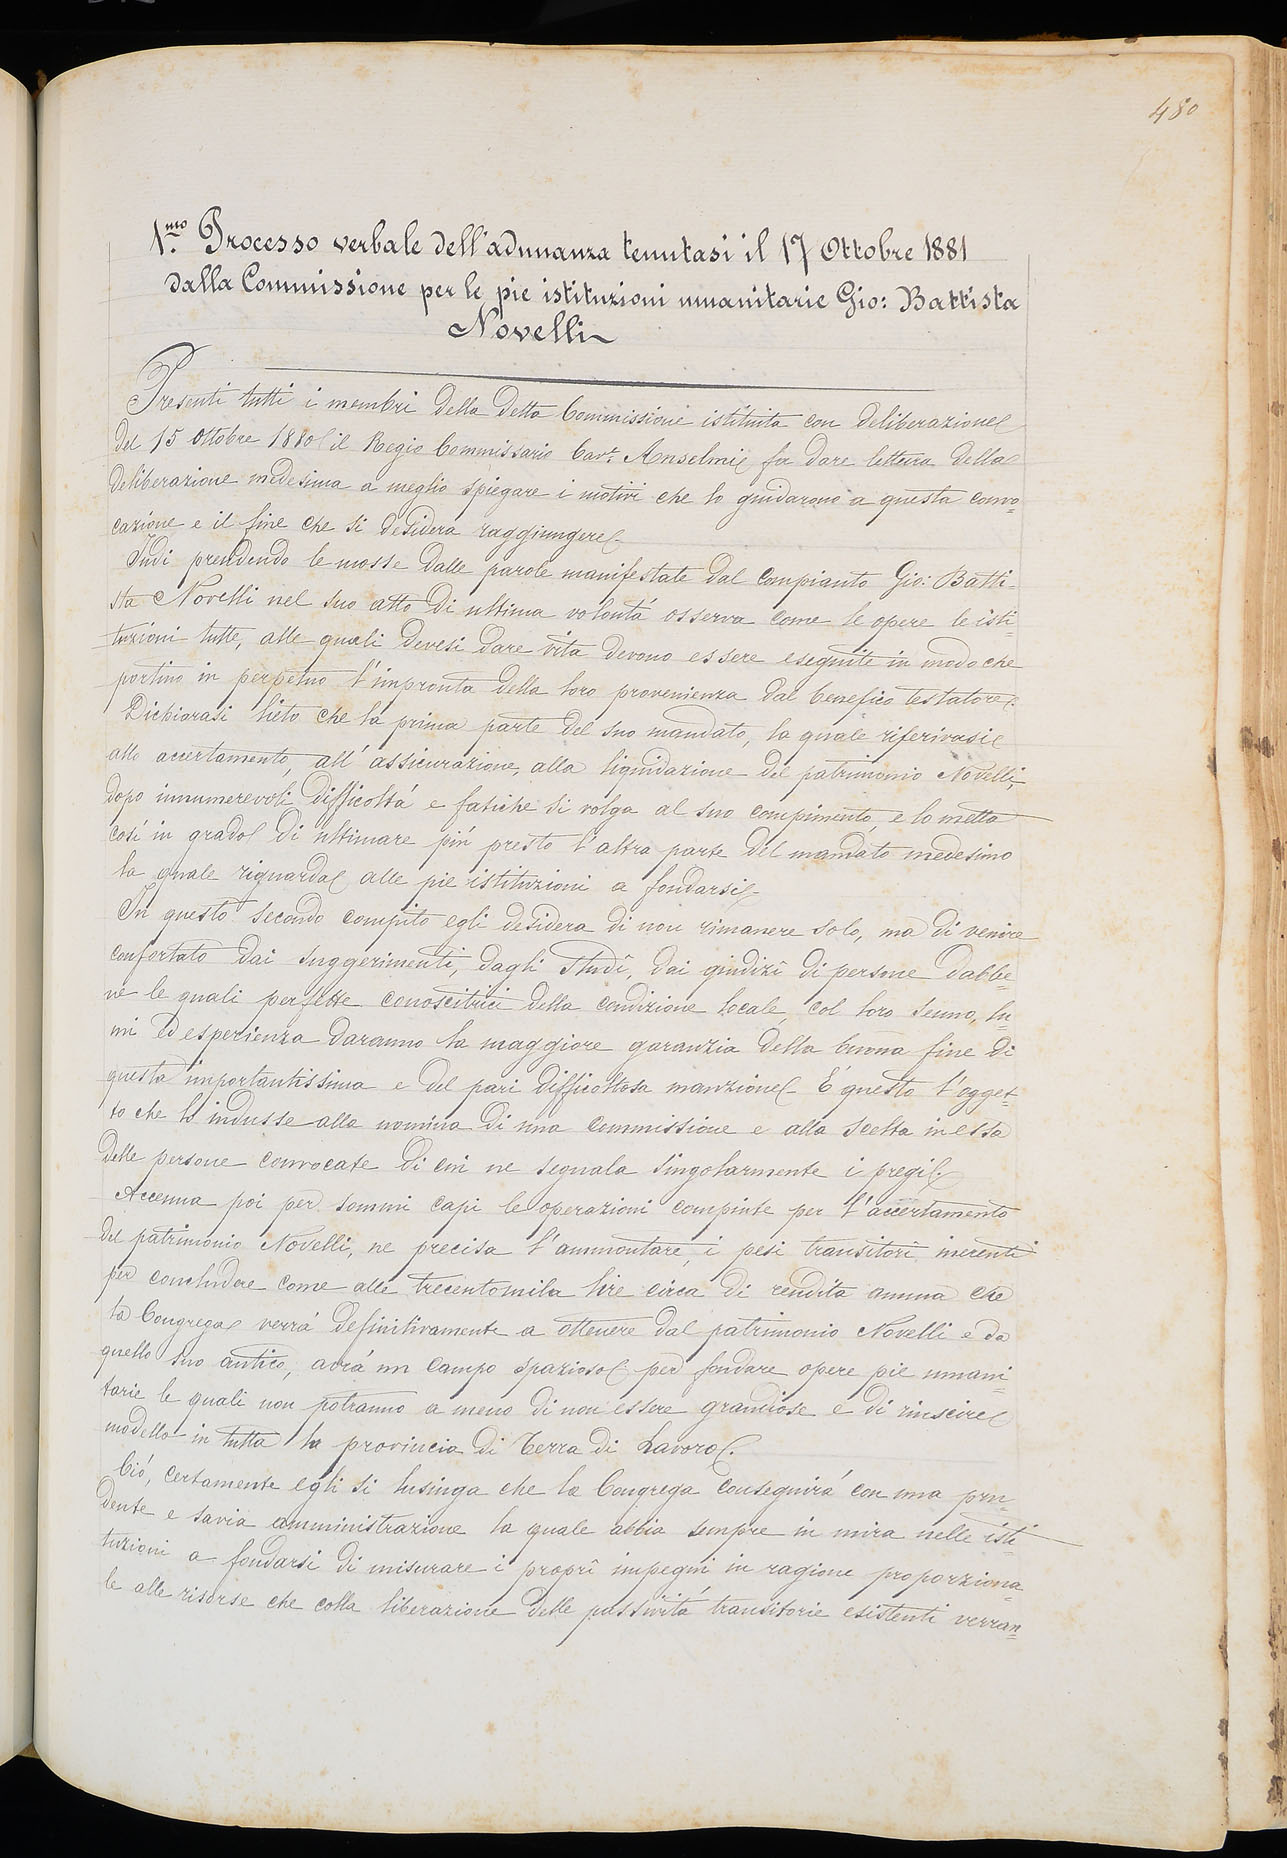 480
1.mo Processo verbale dell'adunanza tenutasi il 17 Ottobre 1881
dalla Commissione per le pie istituzioni umanitarie Gio: Battista
Novelli
Presenti tutti i membri della detta Commissione istituita con deliberazione
del 15 Ottobre 1880 il Regio Commissario Cav.r Anselmi fa dare lettura della
deliberazione medesima a meglio spiegare i motivi che lo guidarono a questa convo=
cazione e il fine che si desidera raggiungere
Indi prendendo le mosse dalle parole manifestate dal compianto Gio: Batti=
sta Novelli nel suo atto di ultima volontá osserva come le opere le isti=
tuzioni tutte, alle quali devesi dare vita devono essere eseguite in modo che
portino in perpetuo l'impronta della loro provenienza dal benefico testatore.
Dichiarasi lieto che la prima parte del suo mandato, la quale riferivasi
allo accertamento, all'assicurazione, alla liquidazione del patrimonio Novelli,
dopo innumerevoli difficoltá e fatiche si volga al suo compimento, e lo metta
cosí in grado di ultimare piú presto l'altra parte del mandato medesimo
la quale riguarda alle pie istituzioni a fondarsi
In questo secondo compito egli desidera di non rimanere solo, ma di venire
confortato dai suggerimenti, dagli studî, dai giudizî di persone dabbe=
ne le quali perfette conoscitrici della condizione locale, col loro senno, lu=
mi ed esperienza daranno la maggiore garanzia della buona fine di
questa importantissima e del pari difficoltosa manzione É questo l'ogget=
to che lo indusse alla nomina di una commissione e alla scelta in essa
delle persone convocate di cui ne segnala singolarmente i pregi.
Accenna poi per sommi capi le operazioni compiute per l'accertamento
del patrimonio Novelli, ne precisa l'ammontare, i pesi transitorî inerenti
per concludere come alle trecentomila lire circa di rendita annua che
la Congrega verrá definitivamente a ottenere dal patrimonio Novelli e da
quello suo antico, avrá un campo spazioso per fondare opere pie umani=
tarie le quali non potranno a meno di non essere grandiose e di riuscire
modello in tutta la provincia di Terra di Lavoro.
Ció, certamente egli si lusinga che la Congrega conseguirá con una pru=
dente e savia amministrazione la quale abbia sempre in mira nelle isti=
tuzioni a fondarsi di misurare i proprî impegni in ragione proporziona=
le alle risorse che colla liberazione delle passivitá transitorie esistenti verran=